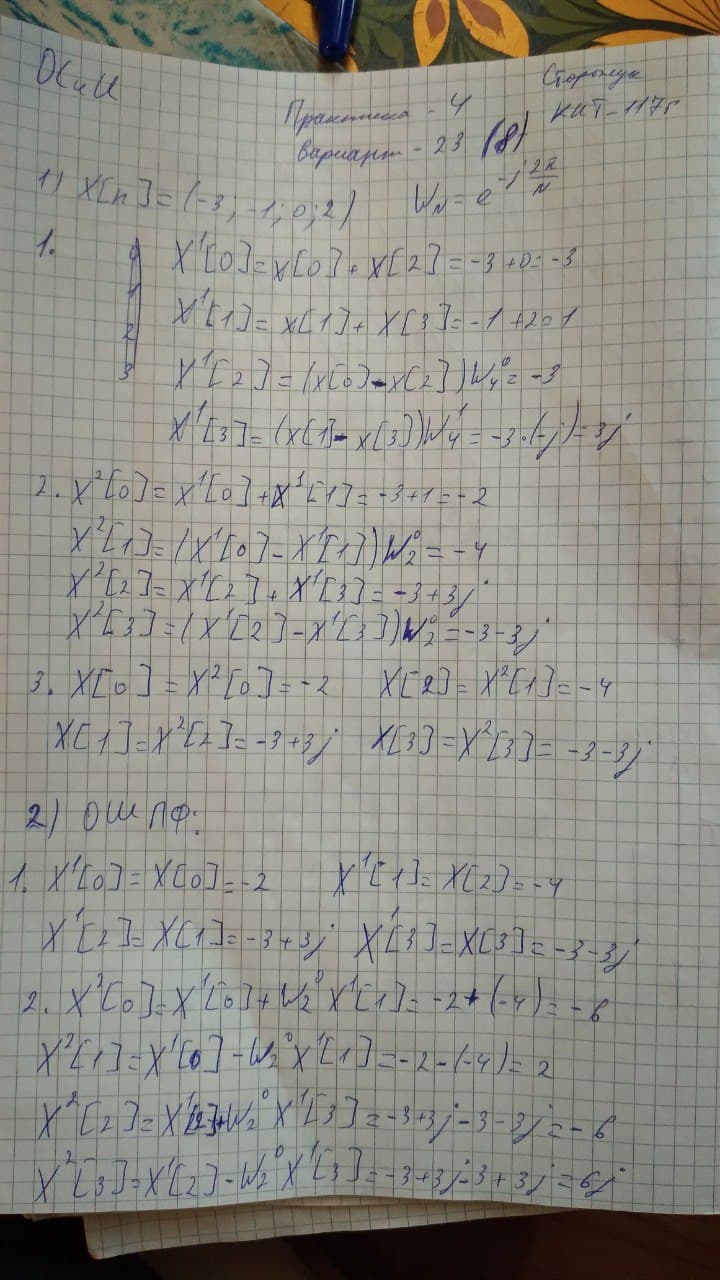 ОСиИ
Сторожук
Практика - 4 КИТ-117г
Вариант - 23 (8)
1) X[n] = (-3; -1; 0; 2) W_N = e^{-j 2π/N}
1. X¹[0] = x[0] + x[2] = -3 + 0 = -3
X¹[1] = x[1] + x[3] = -1 + 2 = 1
X¹[2] = (x[0] - x[2])W₄⁰ = -3
X¹[3] = (x[1] - x[3])W₄¹ = -3·(-j) = 3j
0
1
2
3
2. X²[0] = X¹[0] + X¹[1] = -3 + 1 = -2
X²[1] = (X¹[0] - X¹[1])W₂⁰ = -4
X²[2] = X¹[2] + X¹[3] = -3 + 3j
X²[3] = (X¹[2] - X¹[3])W₂⁰ = -3 - 3j
3. X[0] = X²[0] = -2 X[2] = X²[1] = -4
X[1] = X²[2] = -3 + 3j X[3] = X²[3] = -3 - 3j
2) ОШПФ:
1. X¹[0] = X[0] = -2 X¹[1] = X[2] = -4
X¹[2] = X[1] = -3 + 3j X¹[3] = X[3] = -3 - 3j
2. X²[0] = X¹[0] + W₂⁰ X¹[1] = -2 + (-4) = -6
X²[1] = X¹[0] - W₂⁰ X¹[1] = -2 - (-4) = 2
X²[2] = X¹[2] + W₂⁰ X¹[3] = -3 + 3j - 3 - 3j = -6
X²[3] = X¹[2] - W₂⁰ X¹[3] = -3 + 3j - 3 + 3j = 6j